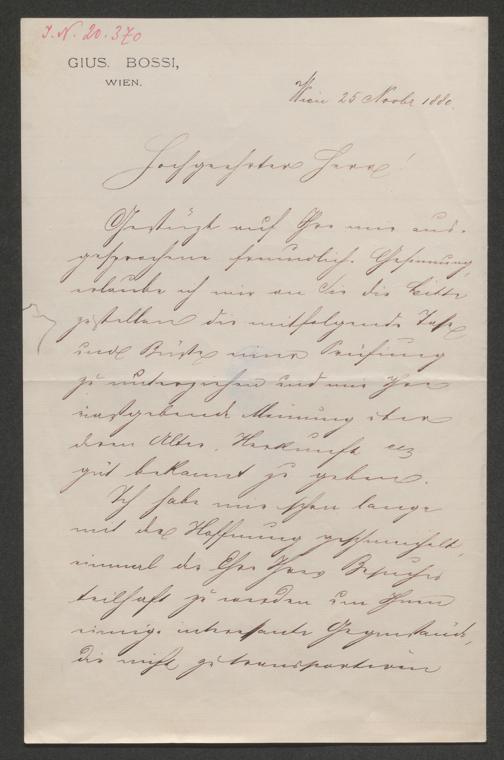 J.N. 20.370
GIUS. BOSSI,
WIEN.
Wien 25 Novbr 1880.
Hochgeehrter Herr!
Gestützt auf Ihre mir aus-
gesprochene freundliche Gesinnung,
erlaube ich mir an Sie die Bitte
zu stellen die mitfolgende Vase
und Büste einer Prüfung
zu unterziehen und mir Ihre
maßgebende Meinung über
deren Alter, Herkunft etz
güt bekannt zu geben.
Ich habe mir schon lange
mit der Hoffnung geschmeichelt,
einmal der Ehre Ihres Besuches
teilhaft zu werden um Ihnen
einige interessante Gegenstände,
die nicht zu transportieren